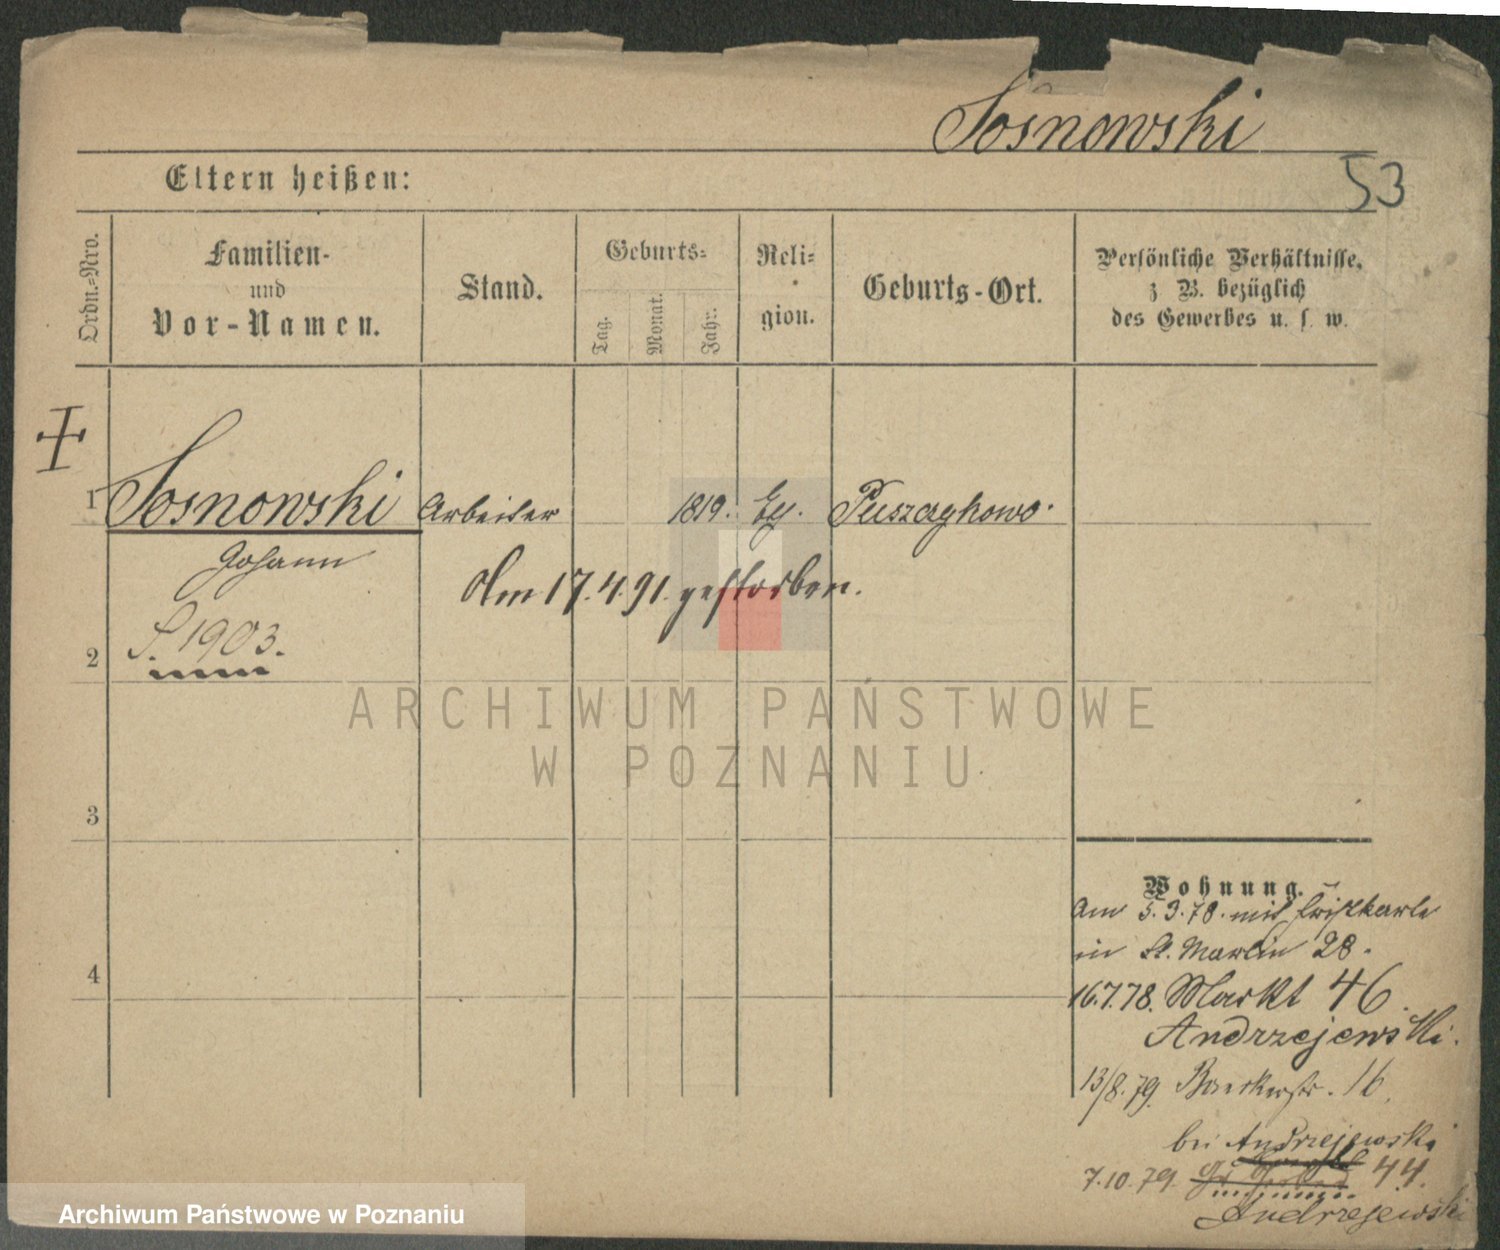 Sosnowski
53
Eltern heißen:
Ordn.-Nro.
Familien-
und
Vor-Namen.
Stand.
Geburts-
Tag.
Monat.
Jahr.
Reli-
gion.
Geburts-Ort.
Persönliche Verhältnisse,
z B. bezüglich
des Gewerbes u. s. w.
1 Sosnowski Arbeiter 1819. Ev. Puszczykowo.
Johann
Am 17.4.91. gestorben.
S. 1903.
2
3
4
ARCHIWUM PAŃSTWOWE
W POZNANIU
Wohnung.
Am 5.3.78. mit
in St. Martin 28.
16.7.78. Markt 46.
Andrzejewski.
13/8.79. Baeckerstr. 16.
bei Andrzejewski
7.10.79. 44.
Andrzejewski
Archiwum Państwowe w Poznaniu